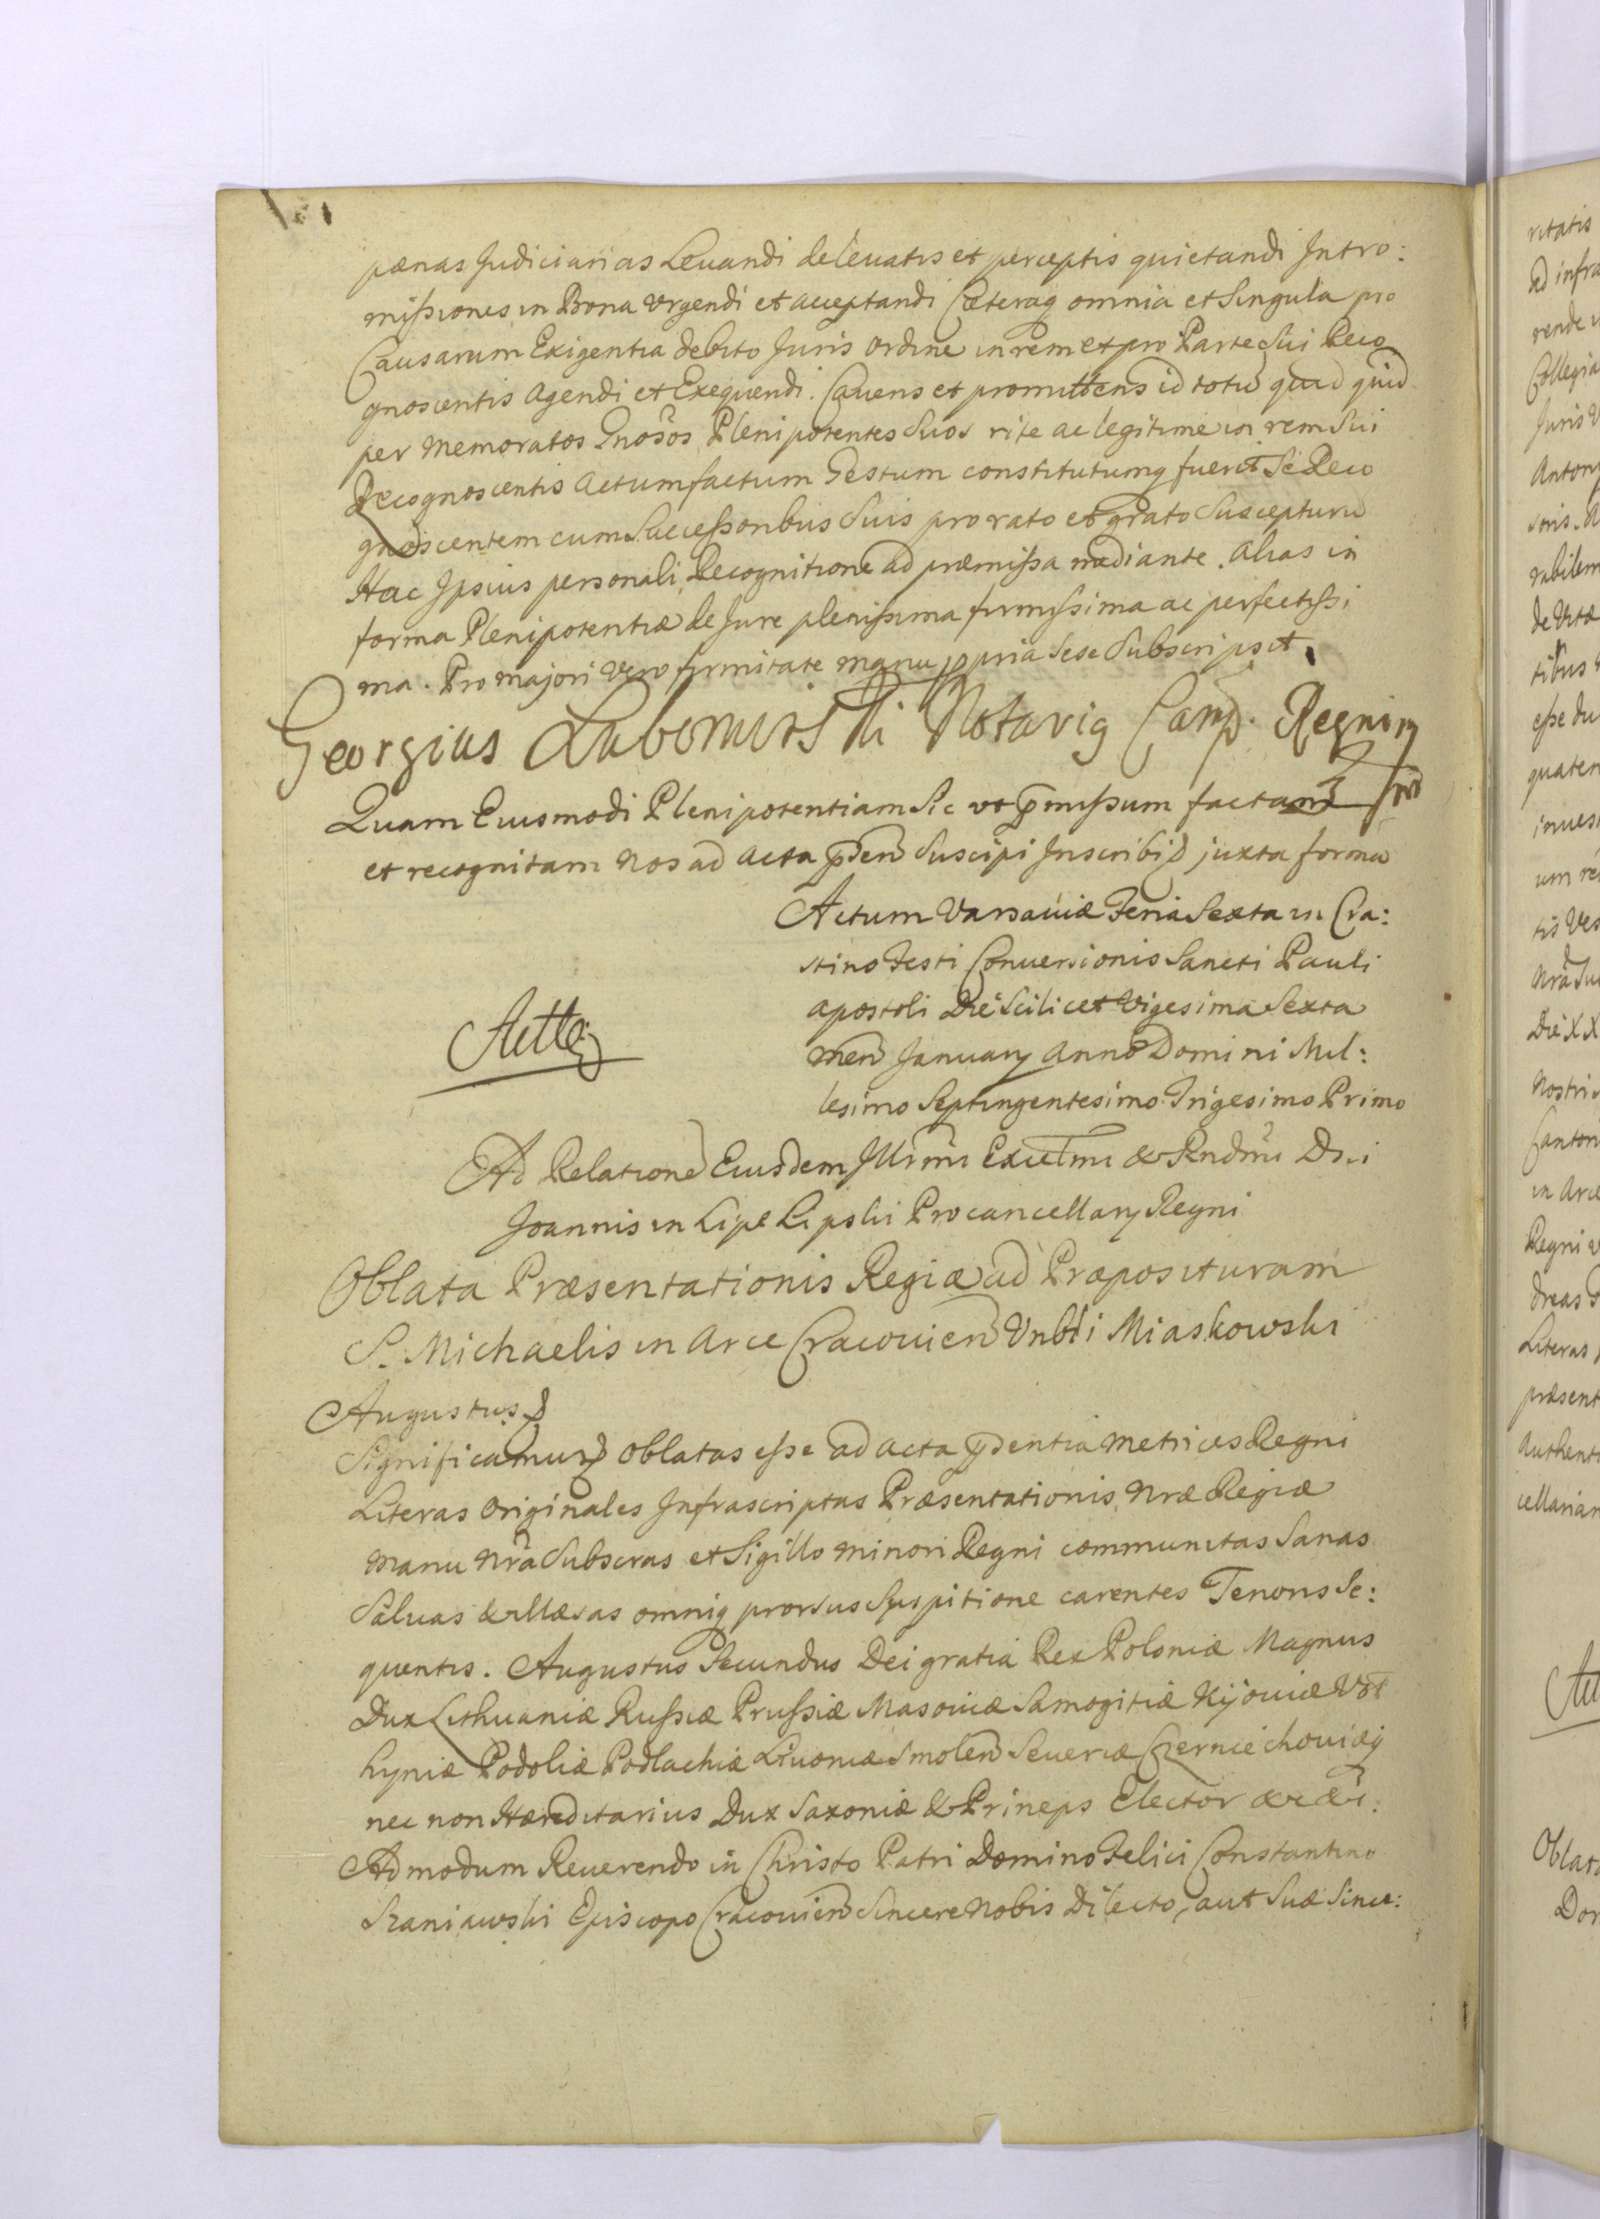 pænas Judiciarias Levandi de levatis et perceptis quietandi Intro:
missiones in Bona Urgendi et acceptandi Cæteraq omnia et Singula pro
Causarum Exigentia debito Juris ordine in rem et pro Parte Sui Reco
gnoscentis agendi et Exequendi. Cavens et promittens id totu quidquid
per memoratos Gnosos Plenipotentes Suos rite ac legitime in rem Sui
Recognoscentis actum factum Gestum constitutumq fuerit Se Reco
gnoscentem cum Successoribus Suis pro rato et grato Suscepturu
Hac Ipsius personali Recognitione ad præmissa mediante. alias in
forma Plenipotentiæ de Jure plenissima firmissima ac perfectissi
ma. Pro majori vero firmitate manu ppria Sese Subscripsit.
Georgius Lubomirski Notarig Camp. Regni
Quam Eiusmodi Plenipotentiam Sic ut pmissum factam
et recognitam Nos ad acta pden Suscipi Inscribi juxta forma
Actum Varsaviæ Feria Sexta in Cra:
stino Festi Conversionis Sancti Pauli
apostoli Die Scilicet Vigesima Sexta
men January Anno Domini Mil:
lesimo Septingentesimo Trigesimo Primo
Ad Relatione Eiusdem Illrmi Excellmi & Rndmi Dni
Joannis in Lipe Lipski Procancellary Regni
Oblata Præsentationis Regiæ ad Præposituram
S. Michaelis in Arce Cracovien Vnbli Miaskowski
Augustus
Significamus oblatas esse ad acta pdentia metrices Regni
Literas originales Infrascriptas Præsentationis Nræ Regiæ
manu nra Subscras et Sigillo minori Regni communitas Sanas
Salvas & illæsas omniq prorsus Suspitione carentes Tenoris Se:
quentis. Augustus Secundus Dei gratia Rex Poloniæ Magnus
Dux Lithuaniæ Russiæ Prussiæ Masoviæ Samogitiæ Kijoviæ Vol
hyniæ Podoliæ Podlachiæ Livoniæ Smolen Severiæ Czerniechoviæq
nec non Hæreditarius Dux Saxoniæ & Prineps Elector &c &c.
Admodum Reverendo in Christo Patri Domino Felici Constantino
Szaniawski Episcopo Cracovien Sincere Nobis Dilecto, aut Suæ Since: